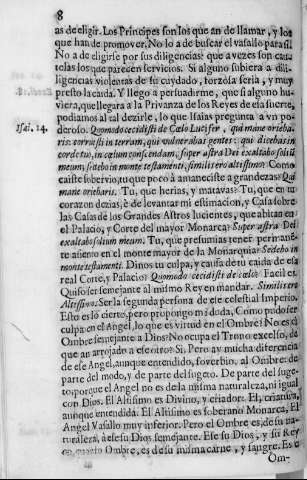 8
as de eligir. Los Principes son los que an de llamar, y los
que han de promover. No lo a de buscar el vasallo para si.
No a de eligirse por sus diligencias: que a vezes son cau
telas los que parecen servicios. Si alguno subiera a dili-
gencias violentas de su cuydado, forzosa seria, y muy
presto la caida. Y llego a persuadirme, que si alguno hu-
viera, que llegara a la Privanza de los Reyes de esa suerte,
podiamos al tal dezirle, lo que Isaias pregunta a vn po-
Isai. 14.
deroso. Quomodo cecidisti de Cælo Lucifer, qui mane orieba-
ris: corruisti in terram, qui vulnerabas gentes: qui dicebas in
corde tuo, in cælum conscendam, super astra Dei exaltabo solium
meum, sedebo in monte testamenti, similis ero altissimo: Como
caiste sobervio, tu que poco à amaneciste a grandezas: Qui
mane oriebaris. Tu, que herias, y matavas? Tu, que en tu
corazon dezias, è de levantar mi estimacion, y Casa sobre
las Casas de los Grandes Astros lucientes, que abitan en
el Palacio, y Corte del mayor Monarca: Super astra Dei
exaltabo solium meum. Tu, que presumias tener permanen-
te asiento en el monte mayor de la Monarquia: Sedebo in
monte testamenti. Dinos tu culpa, y caisda de tu caida de esa
real Corte, y Palacio? Quomodo cecidisti de cælo? Facil es.
Quiso ser semejante al mismo Rey en mandar. Similis ero
Altissimo. Ser la segunda persona de ese celestial Imperio.
Esto es lo cierto, pero propongo mi doda, Como pudo ser
culpa en el Angel, lo que es virtud en el Ombre? No es el
Ombre semejante a Dios? No ocupa el Trono excelso, de
que an arrojado a ese otro? Si. Pero ay mucha diferencia
de ese Angel, aunque entendido, sovervio, al Ombre: de
parte del modo, y de parte del sugeto. De parte del suge-
to, porque el Angel no es de la misma naturaleza, ni igual
con Dios. El Altisimo es Divino, y criador. El, criatura,
aunque entendida. El Altisimo es soberano Monarca. El
Angel Vasallo muy inferior. Pero el Ombre es, de su na-
turaleza, à ese su Dios semejante. Ese su Dios, y su Rey
en quanto Ombre, es de su misma carne, y sangre. Es el
Om-